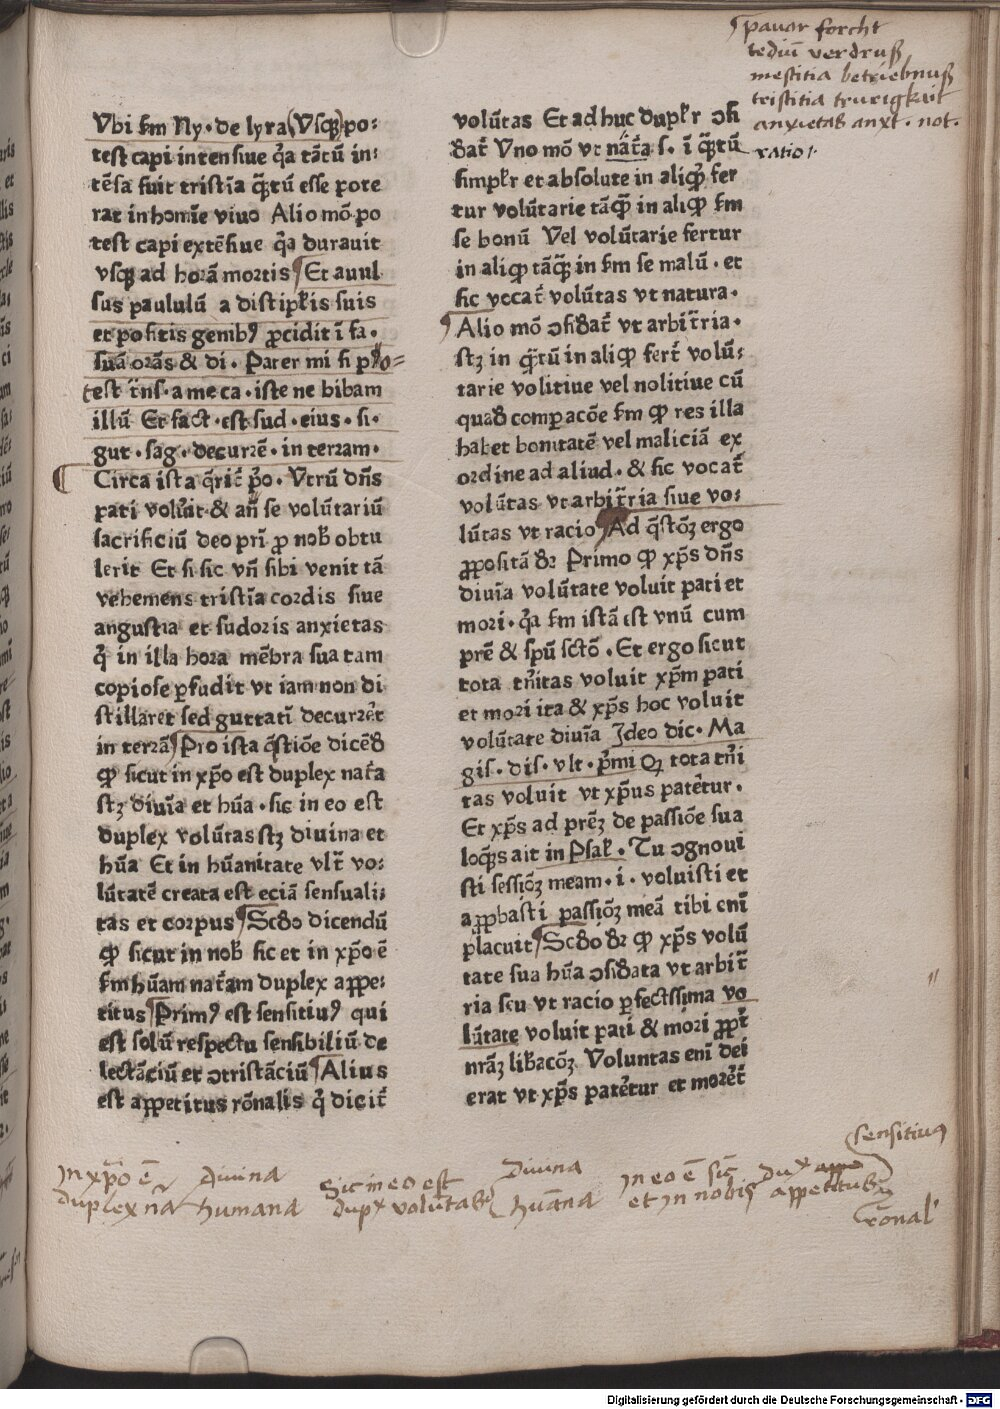 pavor forcht
tediū verdruß
mestitia betriebnuß
tristitia trurigkait
anxietas anxt . not .
Vbi ẜm Ny · de lyra (Vsq̃) po:
test capi intensiue q̃a tātū in:
tēsa fuit tristīa q̄tū esse pote
rat in homīe viuo Alio mō po
test capi extēsiue q̃a durauit
vsq̃ ad horā mortis Et auul
sus paululū a discipl̄is suis
et positis genibꝰ ꝓcidit ī fa ·
suā orās & di · Pater mi si po=
test trñs · a me ca · iste ne bibam
illū Et fact · est sud · eius · si ·
gut · sag · decurrē · in terram ·
Circa ista q̄rit̄ p̄o · Vtrū dn̄s
pati voluīt & an̄ se volūtariū
sacrificiū deo pr̄i ꝓ nob̄ obtu
lerit Et si sic vn̄ sibi venit tā
vehemens tristīa cordis siue
angustia et sudoris anxietas
q̄ in illa hora mēbra sua tam
copiose ꝑfudit vt iam non di
stillaret sed guttatī decurrēt
in terrā Pro ista q̄stiōe dicēd̄
ꝙ sicut in xp̄o est duplex nat̄a
stꝫ diuīa et hūa · sic in eo est
duplex volūtas stꝫ diuina et
hūa Et in hūanitate vlt̄ vo:
lūtatē creata est eciā sensuali:
tas et corpus Scd̄o dicendū
ꝙ sicut in nob̄ sic et in xp̄o ē
ẜm hūam nat̄am duplex appe:
titus Primꝰ est sensitiuꝰ qui
est solū respectu sensibiliū de
lectāciū et ↄtristāciū Alius
est appetitus rōnalis q̄ dicit̄
volūtas Et adhuc dupl̄r ↄsi
dat̄ Vno mō vt nāt̄a s · ī q̄tū
simpl̄r et absolute in aliqȝ fer
tur volūtarie tāq̄ in aliqȝ ẜm
se bonū Vel volūtarie fertur
in aliqȝ tāq̄ in ẜm se malū · et
sic vocat̄ volūtas vt natura ·
Alio mō ↄsidat̄ vt arbit̄ria ·
stꝫ in q̄tū in aliqȝ fert̄ volū:
tarie volitiue vel nolitiue cū
quad̄ comparacōe ẜm ꝙ res illa
habet bonitatē vel maliciā ex
ordine ad aliud · & sic vocat̄
volūtas vt arbit̄ria siue vo:
lūtas vt racio Ad q̄stōȝ ergo
ꝓpositā dr̄ Primo ꝙ xp̄s dn̄s
diuīa volūtate voluit pati et
mori · q̃a ẜm istā est vnū cum
prē & spū sctō · Et ergo sicut
tota tn̄itas voluit xp̄m pati
et mori ita & xp̄s hoc voluit
volūtate diuīa Ideo dic · Ma
gis · dis · vlt · p̄mi Q tota tn̄i
tas voluit vt xp̄us patētur ·
Et xp̄s ad prēȝ de passiōe sua
loq̄s ait in Psal̄ · Tu ↄgnoui
sti sessiōȝ meam · i · voluisti et
aꝓbasti passiōȝ meā tibi enī
placuit Scd̄o dr̄ ꝙ xp̄s volū
tate sua hūa ↄsid̄ata vt arbit̄
ria seu vt racio ꝑfectissima vo
lūtate voluit pati & mori ꝓpt̄
nrāȝ lib̄acōȝ Voluntas enī dei
erat vt xp̄s patēt̄ur et morēt̄
In xp̄o ē
duplex nā
divina
humana
Sic in eo est
dupx volūtas
Divina
hūana
In eo ē sic
et in nobis
dux
appetitus
sensitivus
rōnal
Digitalisierung gefördert durch die Deutsche Forschungsgemeinschaft · DFG